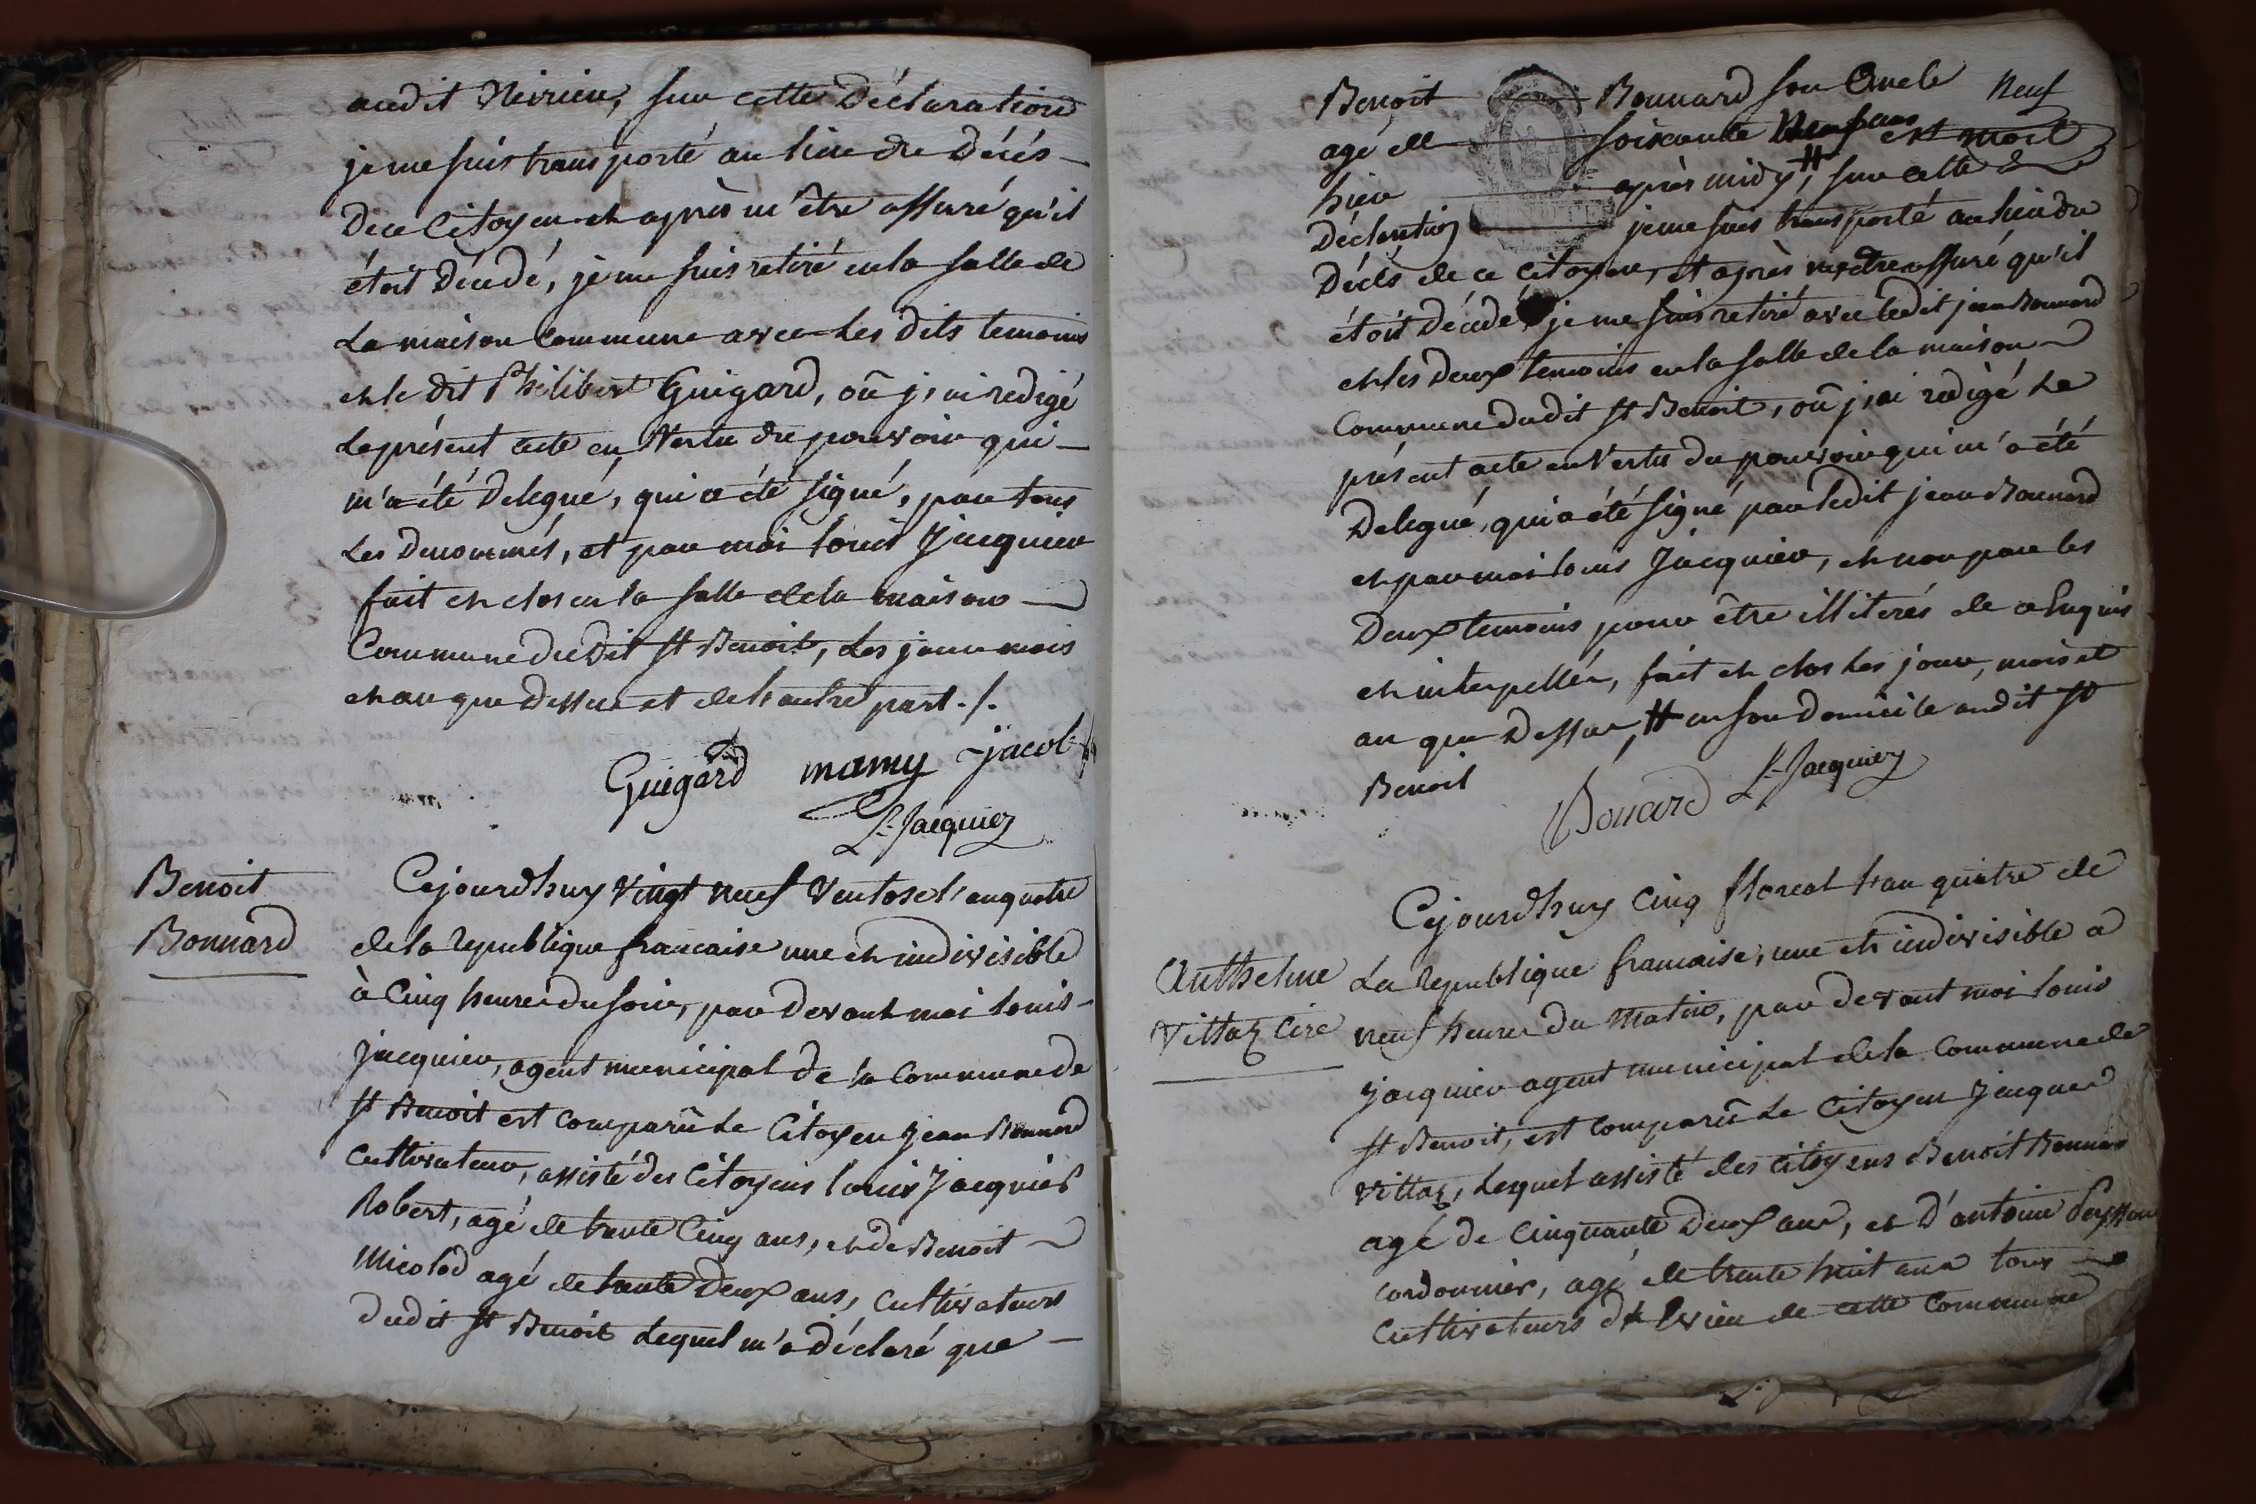 audit Nevrieu, sur cette Déclaration
je me suis transporté au lieu du Décés
De ce Citoyen et après m'être assuré qu'il
étoit Décedé, je me suis retiré en la salle de
La maison Commune avec Les dits temoins
et le dit Philibert Guigard, où j'ai redigé
Le présent acte en Vertu du pouvoir qui
m'a été Delegué, qui a été signé, par tous
Les Denommés, et par moi louis Jacquier
fait et clos en la salle de la maison
Commune du Dit St Benoit, Les jour mois
et an que Dessus et de l'autre part ./.
Guigard mamy jacob
L. Jacquier
Benoit
Bonnard
Cejourd'huy Vingt neuf Ventose l'an quatre
de la republique francaise une et indivisible
à Cinq heures du soir, par Devant moi louis
jacquier, agent municipal de la Commune de
St Benoit est comparû Le Citoyen Jean Bonnard
Cultivateur, assisté des Citoyens louis Jacquier
Robert, agé de trente Cinq ans, et de Benoit
Micolod agé de trente Deux ans, Cultivateurs
dudit St Benoit Lequel m'a déclaré que
Benoit Bonnard son Oncle
Neuf
agé de soixante Neuf ans est mort
hier après midy #, sur cette
Déclaration je me suis transporté au lieu du
Décés de ce Citoyen, et après m'être assuré qu'il
étoit Décedé, je me suis retiré avec ledit jean Bonnard
et les Deux temoins en la salle de la maison
Commune dudit St Benoit, où j'ai redigé Le
présent acte en Vertu du pouvoir qui m'a été
Delegué, qui a été signé par ledit jean Bonnard
et par moi louis Jacquier, et non par les
Deux temoins pour être illiterés de ce Enquis
et interpellés, fait et clos Les jour, mois et
an que Dessus, # en son Domicile audit St
Benoit
Bonard L. Jacquier
Cejourd'huy Cinq floreal l'an quatre de
Anthelme
Vittoz Cire
La republique francaise, une et indivisible a
neuf heures du Matin, par devant moi louis
Jacquier agent municipal de la Commune de
St Benoit, est comparû Le Citoyen Jacques
Vittoz, Lequel assisté des Citoyens Benoit Bonnard
agé de Cinquante Deux ans, et D'antoine
cordonnier, agé de trente huit ans tous
Cultivateurs d'Evieu de cette Commune